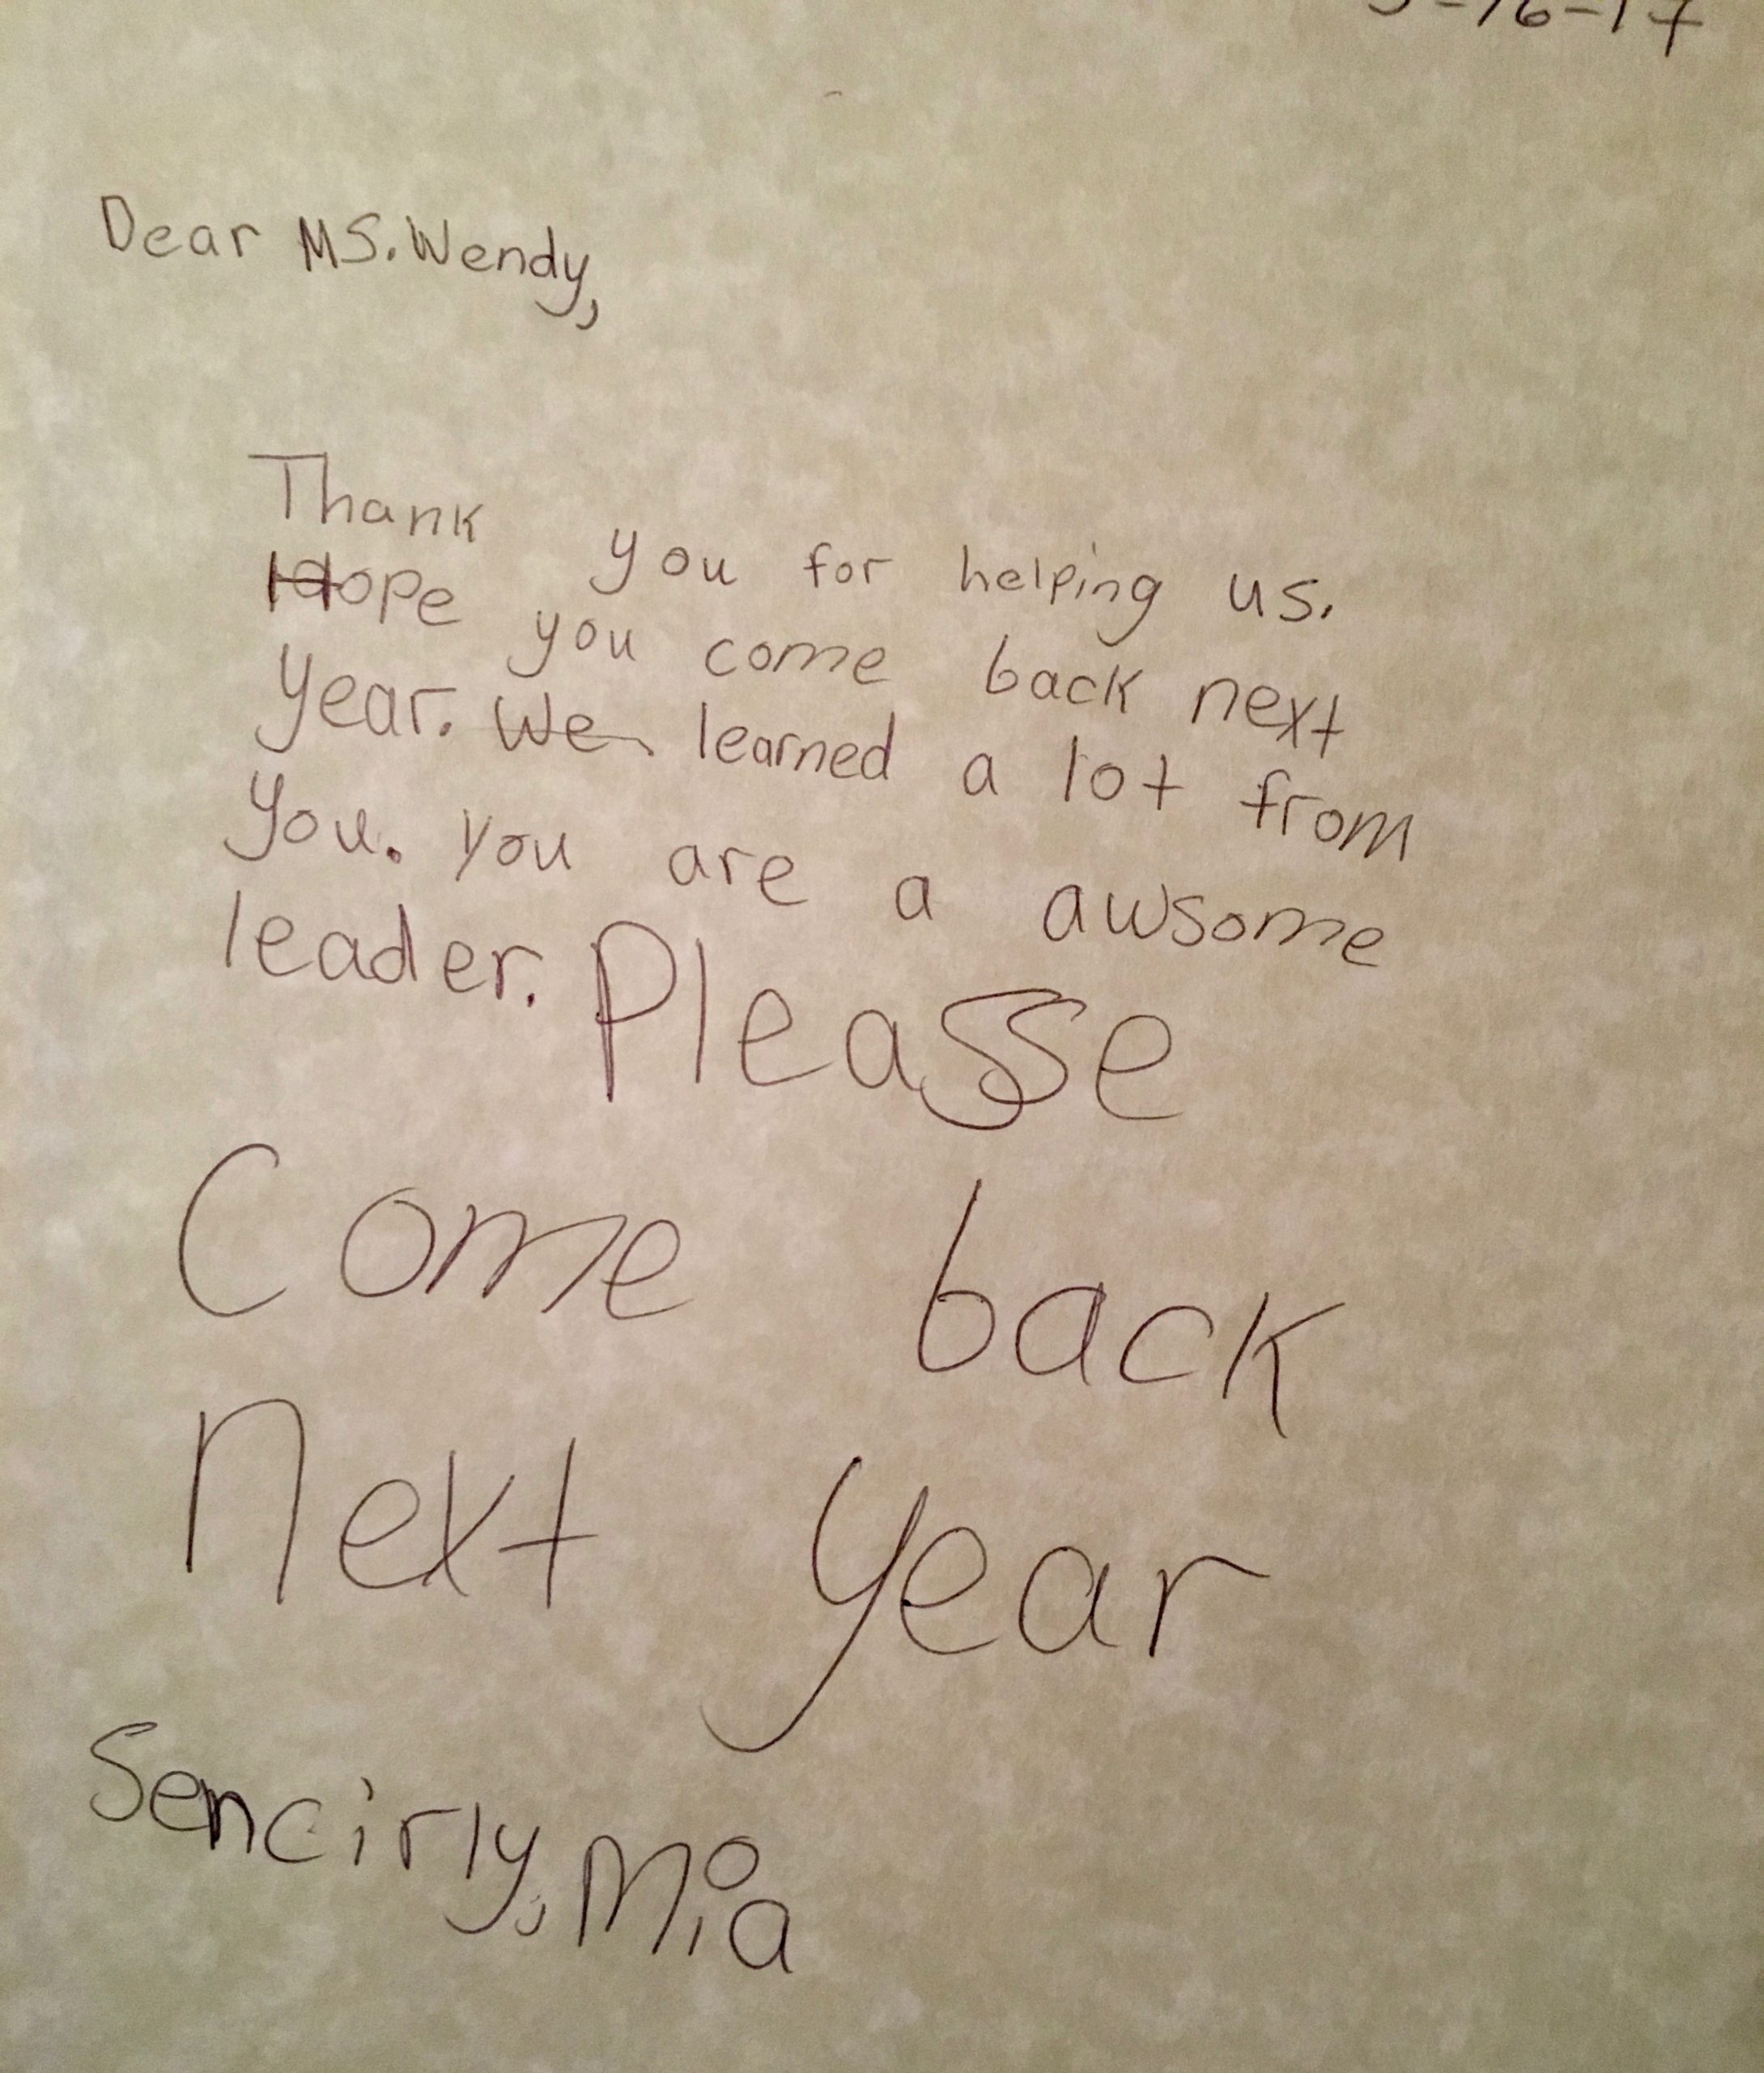 -16-17
Dear MS. Wendy,
Thank you for helping us.
Hope you come back next
year. We learned a lot from
you. You are a awsome
leader. Pleasse
Come back
next year
Sencirly, Mia